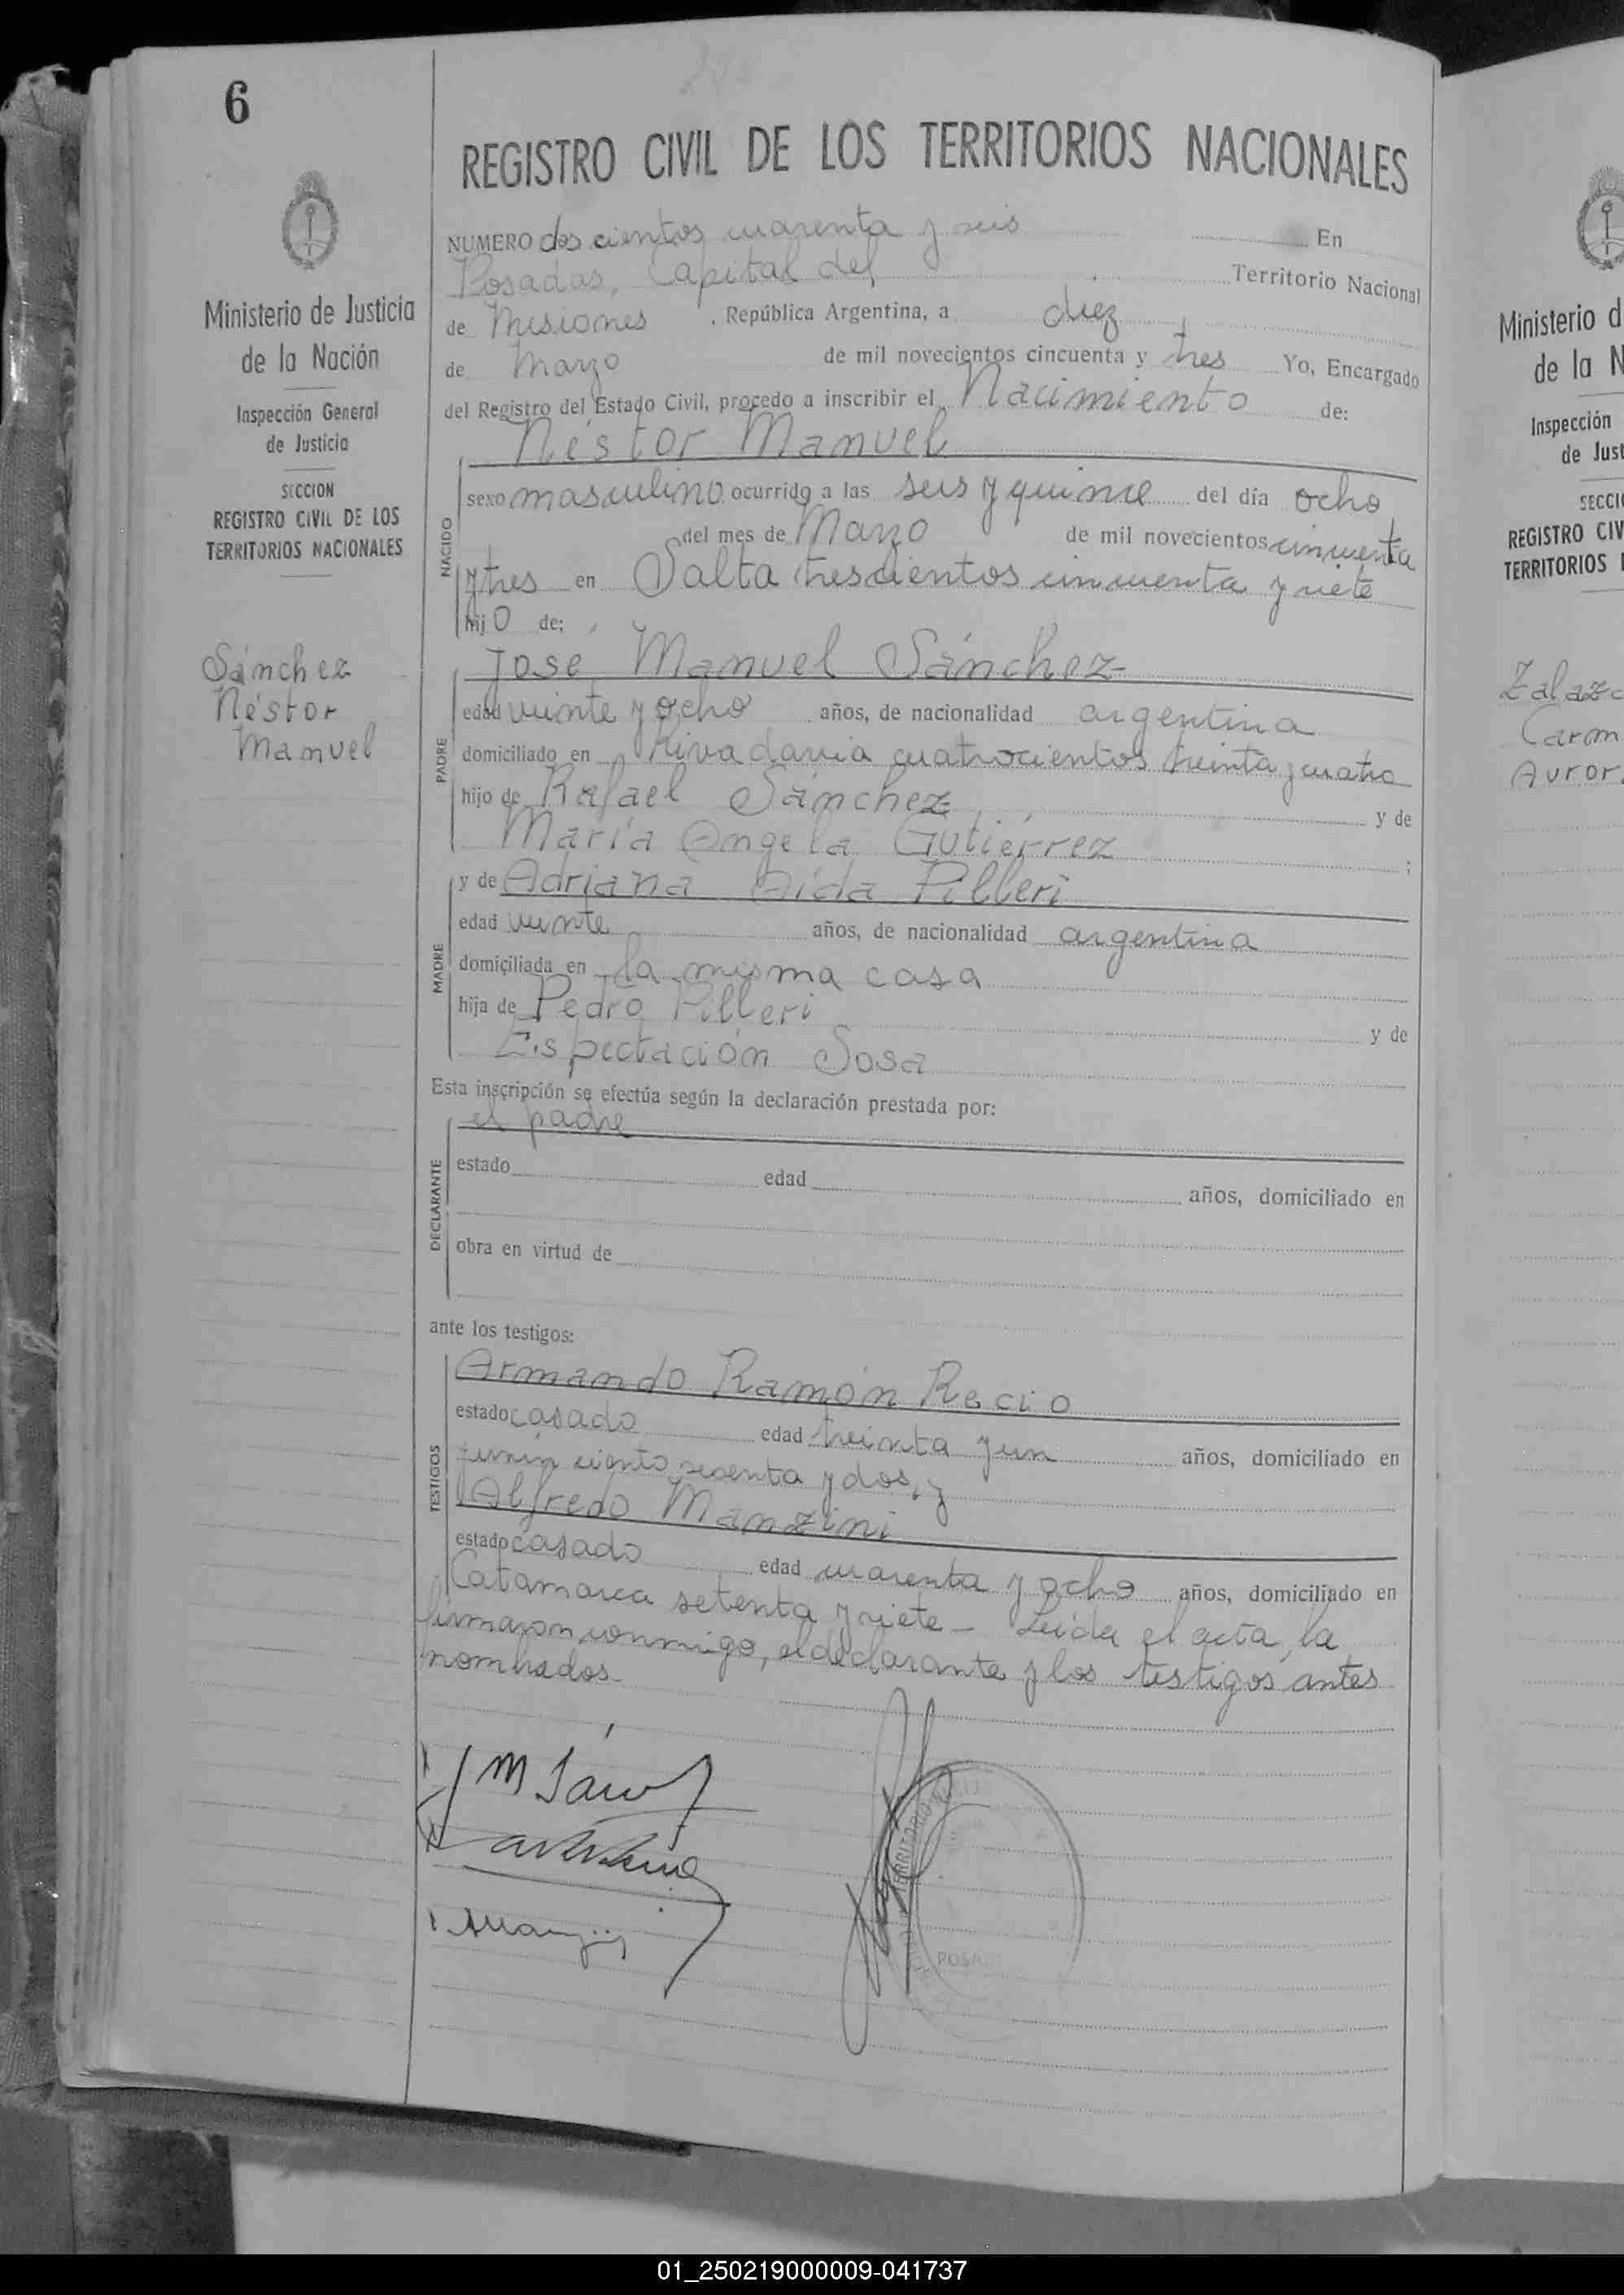 6
REGISTRO CIVIL DE LOS TERRITORIOS NACIONALES
Ministerio de Justicia
de la Nación
Inspección General
de Justicia
SECCION
REGISTRO CIVIL DE LOS
TERRITORIOS NACIONALES
Sánchez
Néstor
Manuel
NUMERO dos cientos cuarenta y seis En
Posadas, Capital del Territorio Nacional
de Misiones, República Argentina, a diez
de Marzo de mil novecientos cincuenta y tres Yo, Encargado
del Registro del Estado Civil, procedo a inscribir el Nacimiento de:
Néstor Manuel
NACIDO
sexo masculino ocurrido a las seis y quince del día ocho
del mes de Marzo de mil novecientos cincuenta
y tres en Salta trescientos cincuenta y siete
hijo de:
José Manuel Sánchez
PADRE
edad veinte y ocho años, de nacionalidad argentina
domiciliado en Rivadavia cuatrocientos treinta y cuatro
hijo de Rafael Sánchez y de
María Angela Gutiérrez ;
y de Adriana Aída Pilleri
MADRE
edad veinte años, de nacionalidad argentina
domiciliada en la misma casa
hija de Pedro Pilleri y de
Espectación Sosa
Esta inscripción se efectúa según la declaración prestada por:
el padre
DECLARANTE
estado edad años, domiciliado en
obra en virtud de
ante los testigos:
TESTIGOS
Armando Ramón Recio
estado casado edad treinta y un años, domiciliado en
Junín ciento sesenta y dos, y
Alfredo Manzini
estado casado edad cuarenta y ocho años, domiciliado en
Catamarca setenta y siete - Leída el acta, la
firmaron conmigo, el declarante y los testigos antes
nombrados.-
TERRITORIO
POSA
Ministerio d
de la N
Inspección
de Just
SECCI
REGISTRO CIV
TERRITORIOS
Zalaza
Carm
Auror
01_250219000009-041737